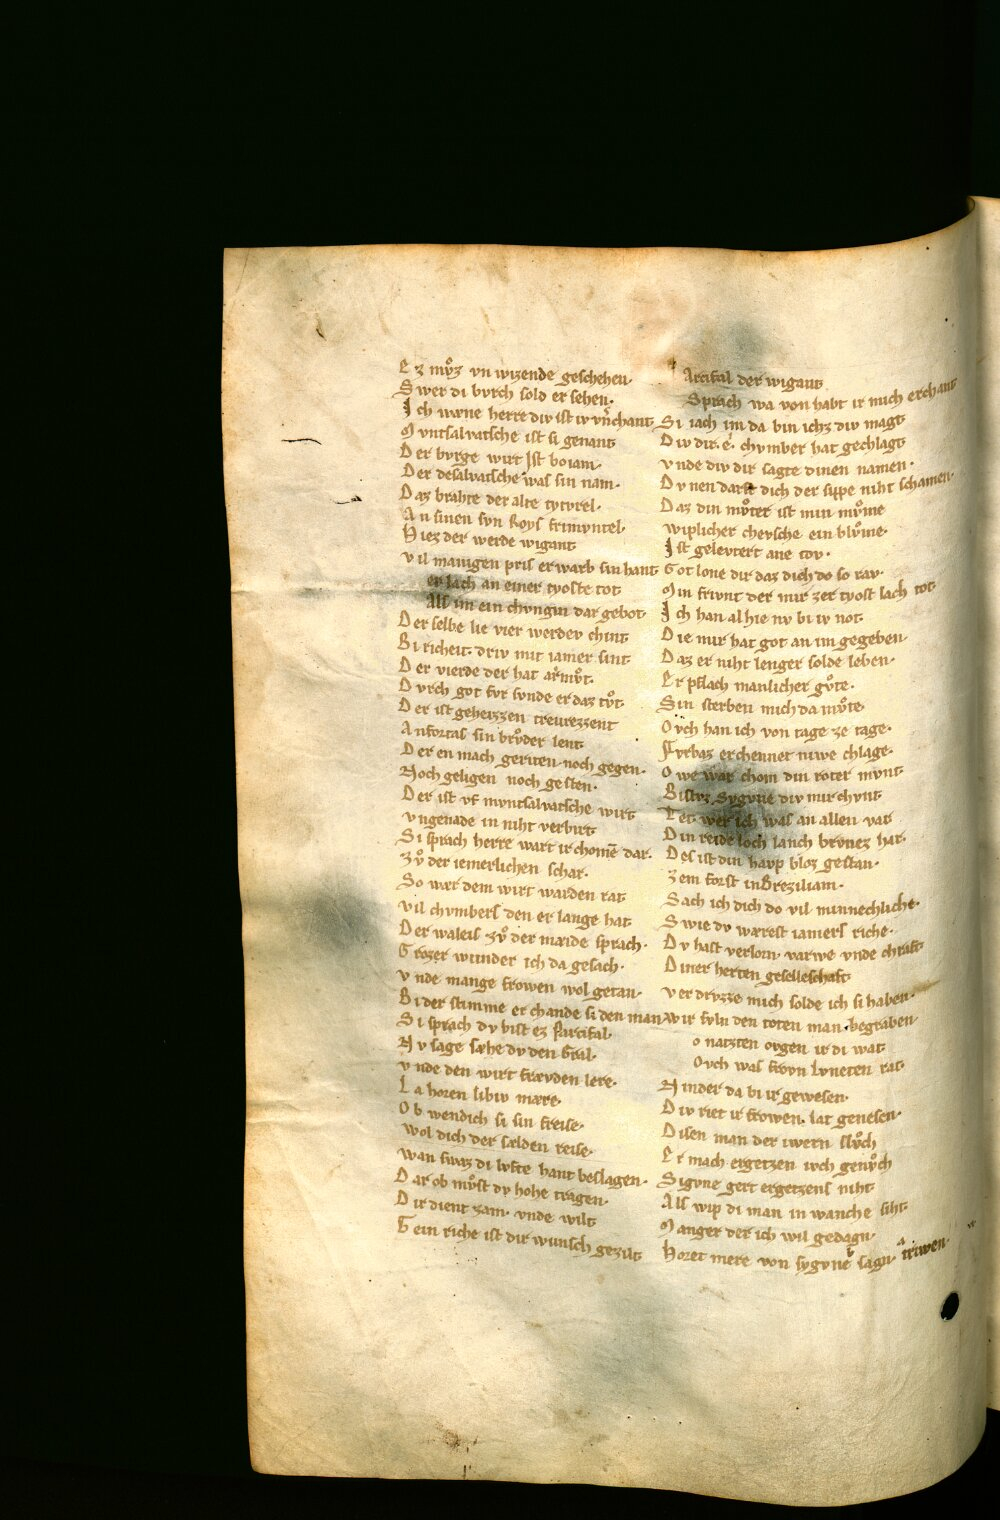 Ez mvͦz vn wizende geschehen·
Swer di bvrch sold er sehen·
Ich wæne herre div ist iv vn̄chant
Mvntsalvatsche ist si genant
Der bvrge wirt Ist roiam·
Der desalvatsche was sin nam·
Daz brahte der alte tytvrel·
An sinen svn Roys frimvntel·
Hiez der werde wigant
vil manigen pris erwarb sin hant
er lach an einer tyoste tot
Als im ein chvngin dar gebot·
Der selbe lie vier werdev chint
Bi richeit· driv mit iamer sint·
Der vierde der hat armvͦt·
Dvrch got fvr svnde er daz tvͦt·
Der ist geheizzen trevrezzent
Anfortas sin brvͦder lent·
Der en mach geriten noch gegen·
Noch geligen noch gesten·
Der ist vf mvntsalvatsche wirt
vngenade in niht verbirt
Si sprach herre wart ir chomē dar·
Zvͦ der iemerlichen schar·
So wær dem wirt warden rat
vil chvmbers den er lange hat
Der waleis zvͦ der mæide sprach·
Grozer wunder ich da gesach·
vnde mange frowen wol getan·
Bi der stimme er chande si den man
Si sprach dv bist ez parcifal·
Nv sage sæhe dv den Gral·
vnde den wirt frævden lere·
La horen libiv mære·
Ob wendich si sin freise·
wol dich der sælden reise·
wan swaz di lvfte hant beslagen·
Dar ob mvͦst dv hohe tragen·
Dir dient zam· vnde wilt
Gein riche ist dir wunsch gezilt
Parcifal der wigant
Sprach wa von habt ir mich erchant
Si iach im da bin ichz div magt
Div dir· e· chvmber hat gechlagt
vnde div dir sagte dinen namen·
Dvnen darft dich der sippe niht schamen·
Daz din mvͦter ist min mvͦme
wiplicher chevsche ein blvͦme·
Ist gelevtert ane tov·
Got lone dir daz dich do so rav·
Min frivnt der mir zer tyost lach tot·
Ich han al hie nv bi iv not·
Die mir hat got an im gegeben·
Daz er niht lenger solde leben·
Er pflach manlicher gvͦte·
Sin sterben mich da mvͦte
Ovch han ich von tage ze tage·
Fvrbaz erchennet niwe chlage·
Owe war chom din roter mvnt·
Bistvz Sygvne div mir chvnt
Tet wer ich was an allen var
Din reide loch lanch brvnez har·
Des ist din havp bloz gestan·
Zem forst in Breziliam·
Sach ich dich do vil minnechliche·
Swie dv wærest iamers riche·
Dv hast verlorn· varwe vnde chraft
Diner herten geselleschaft
verdrvzze mich solde ich si haben·
wir svln den toten man begraben·
o natzten ovgen ir di wat
Ovch was frovn lvneten rat·
Ninder da bi ir gewesen·
Div riet ir frowen· lat genesen·
Disen man der iwern slvͦch
Er mach ergetzen ivch genvͦch
Sigvne gert ergetzens niht
Als wip di man in wanche siht
Manger der ich wil gedagn·
Horet mere von sygvne sagn· triwen·